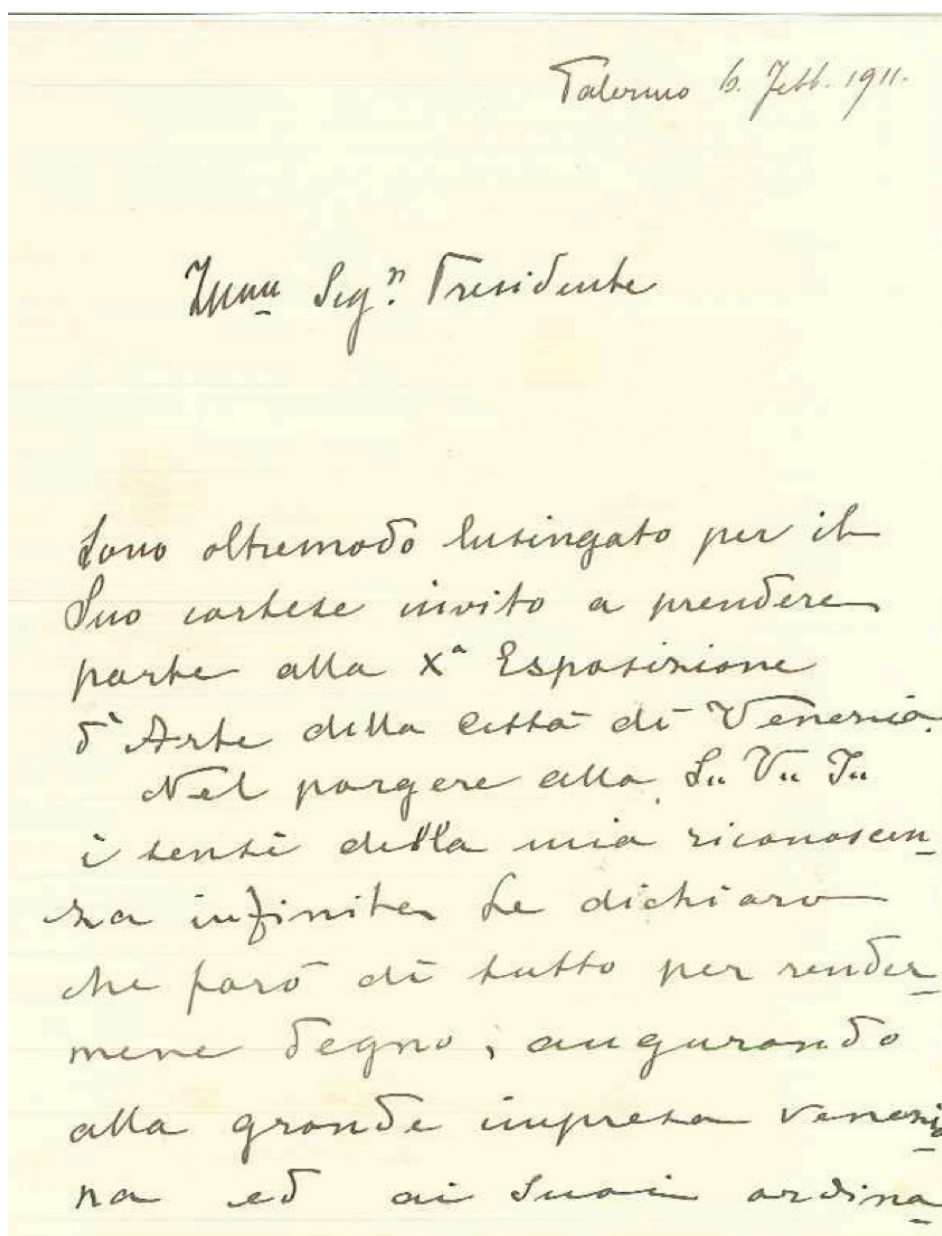 Palermo 6. Febb. 1911.
Sigʳ. Presidente
Sono oltremodo lusingato per il
Suo cortese invito a prendere
parte alla Xª Esposizione
d'Arte della Città di Venezia.
Nel porgere alla S.. V.. I..
i sensi della mia riconoscen_
za infinita, Le dichiaro
che farò di tutto per render_
mene degno, augurando
alla grande impresa venezia_
na ed ai suoi ordina_